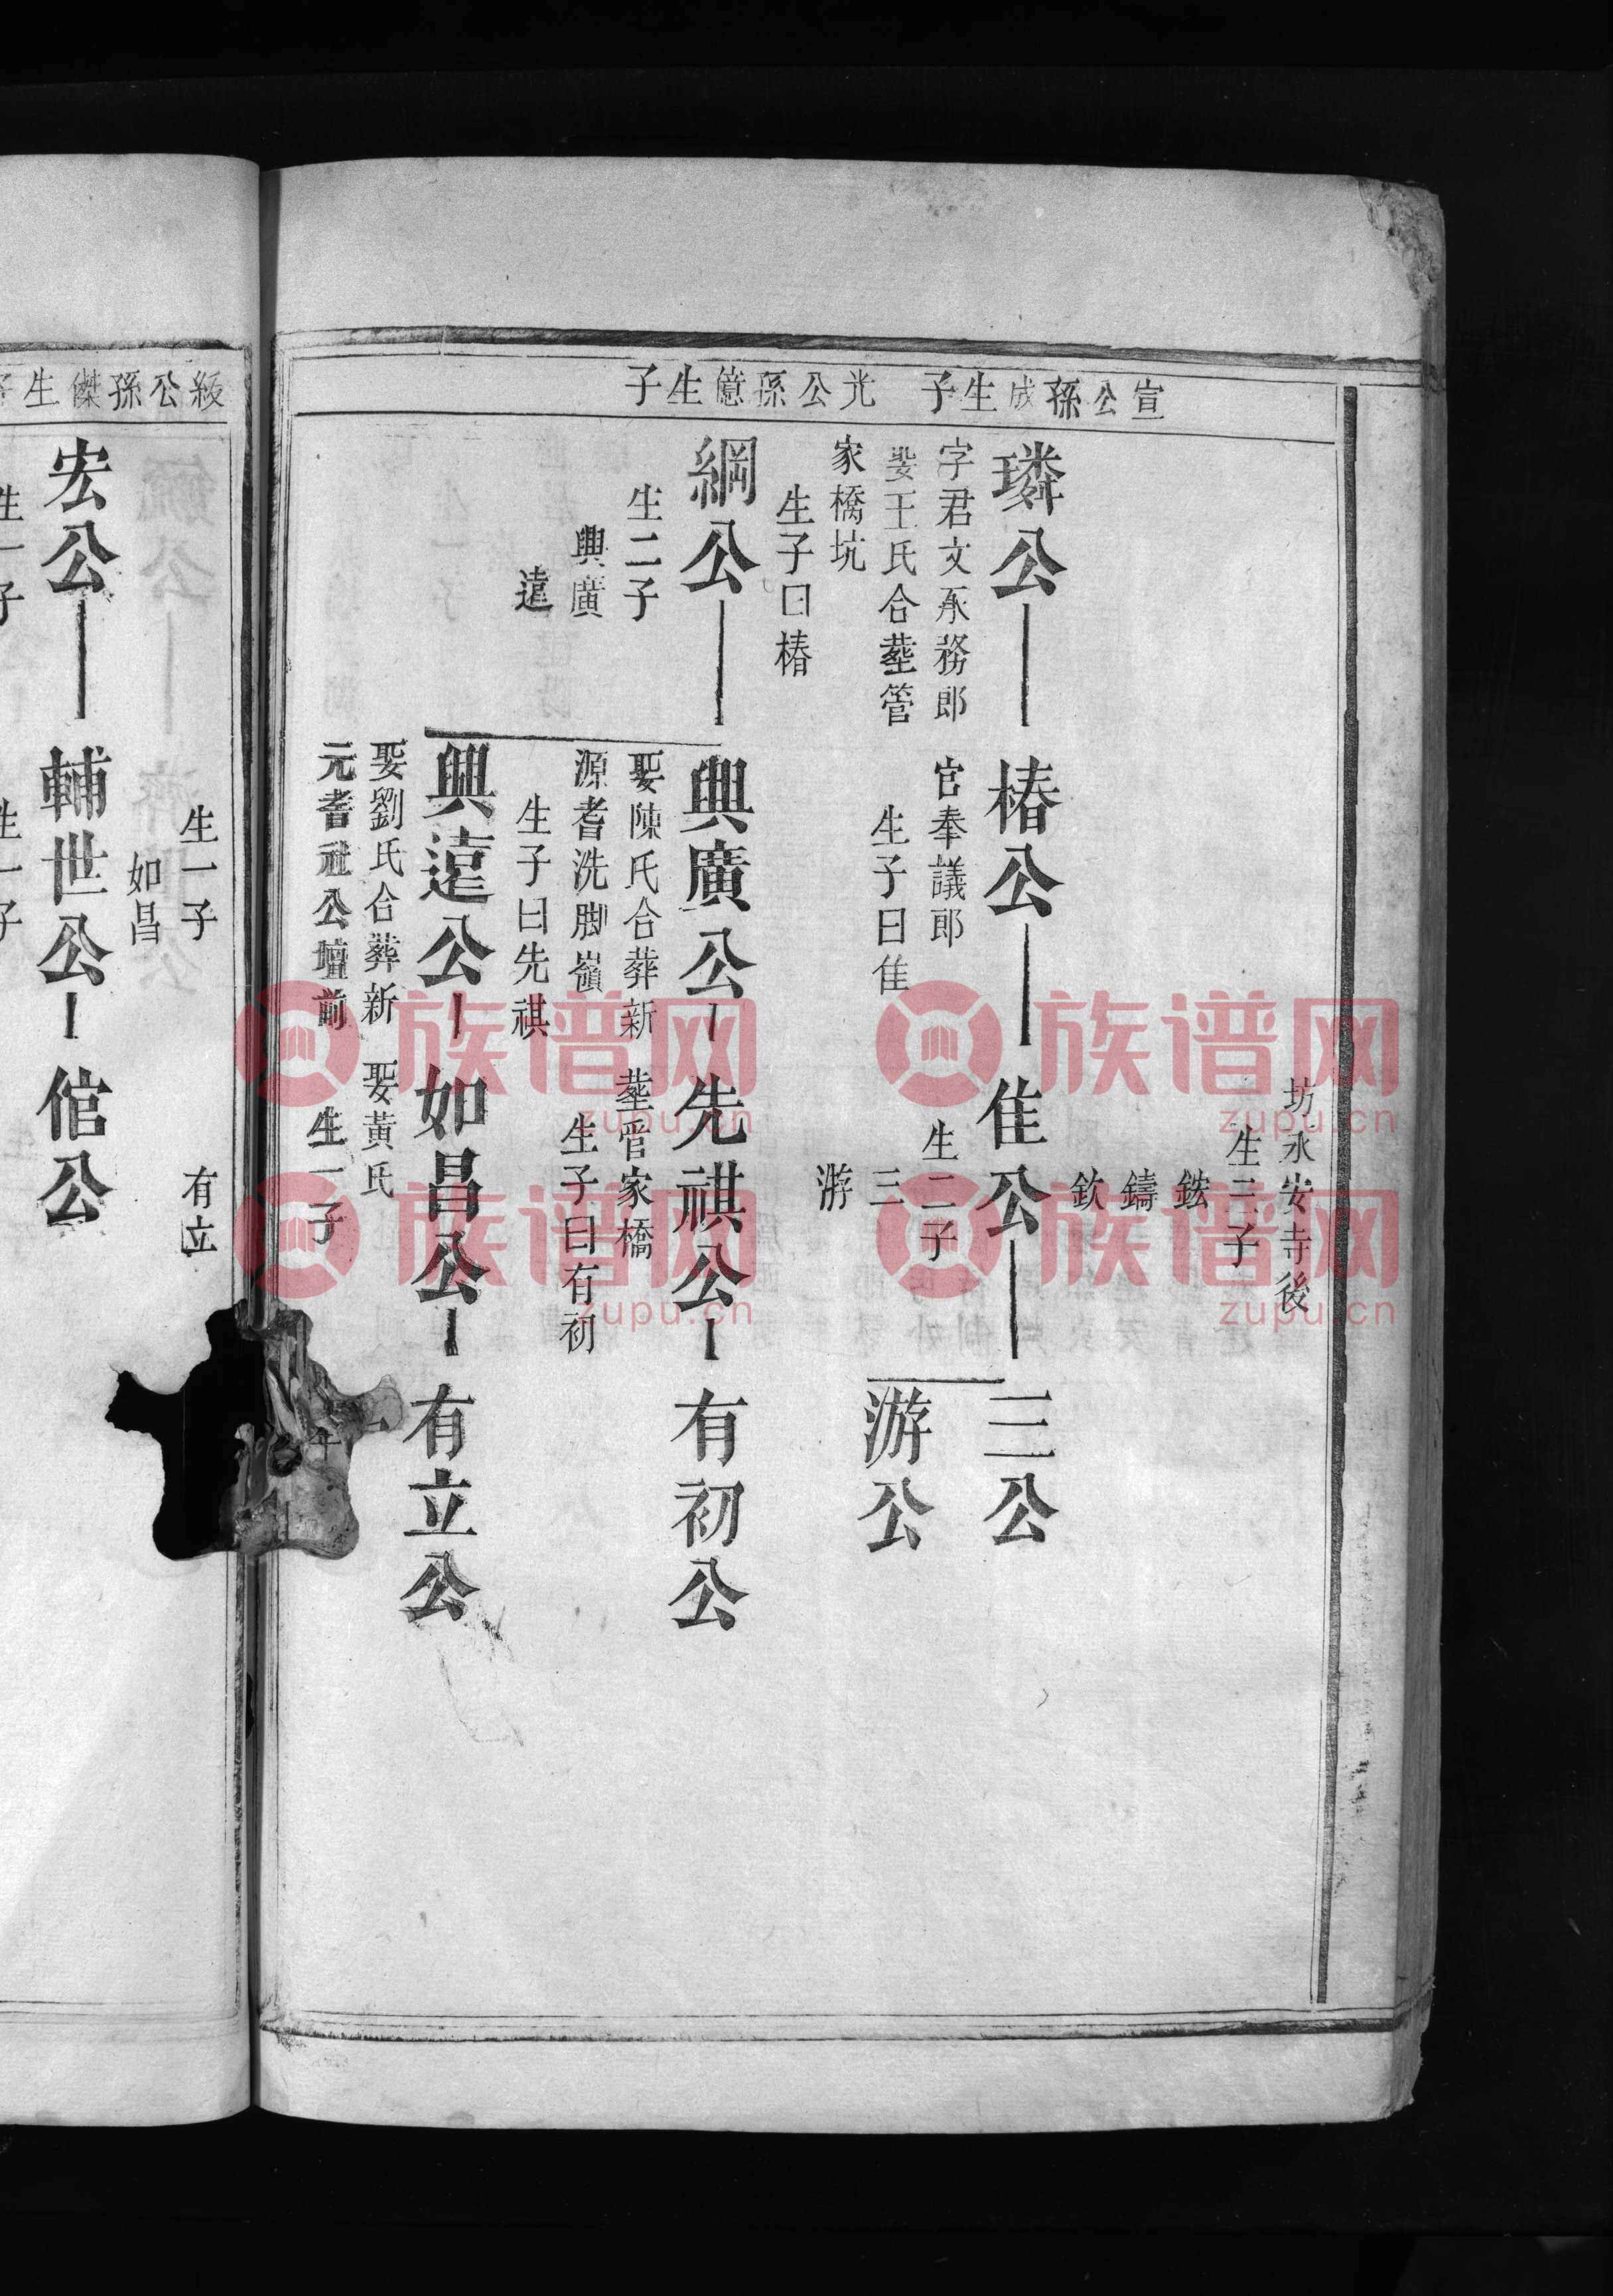 宣公孫成生子
光公孫億生子
坊永安寺後
生三子
鋐
鑄
欽
璘公
椿公
隹公
三公
字君文承務郎
娶王氏合塟管
家橋坑
生子曰椿
官奉議郎
生子曰隹
生二子
三
游
游公
綱公
興廣公
先祺公
有初公
生二子
興廣
遠
娶陳氏合葬新
源耆洗脚嶺
生子曰先祺
塟管家橋
生子曰有初
興遠公
如昌公
有立公
娶劉氏合葬新
元耆社公壇前
娶黃氏
生一子
公孫傑生
生一子
如昌
有立
宏公
輔世公
倌公
生一子
生一子
族谱网
zupu.cn
族谱网
zupu.cn
族谱网
zupu.cn
族谱网
zupu.cn